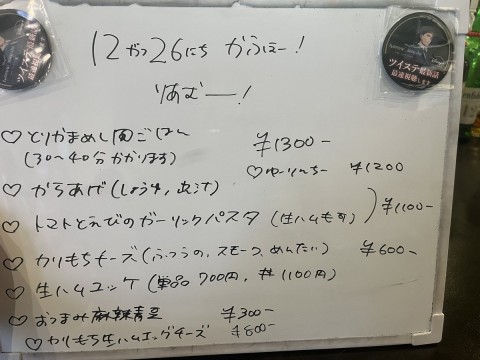 12がつ26にち かふぇー!
りあむー!
♡とりかまめし風ごはん ¥1300-
(30〜40分かかります)
♡ゆーりんちー ¥1200
♡からあげ(しょうゆ,
♡トマトとえびのガーリックパスタ(生ハムも可) ¥1100-
♡カリもちチーズ(ふつうの, スモーク, めんたい) ¥600-
♡生ハムユッケ(単品700円, 丼1100円)
♡おつまみ麻辣青豆 ¥300-
♡カリもち生ハムエッグチーズ ¥800-
ツイステ最新話
最速視聴しました